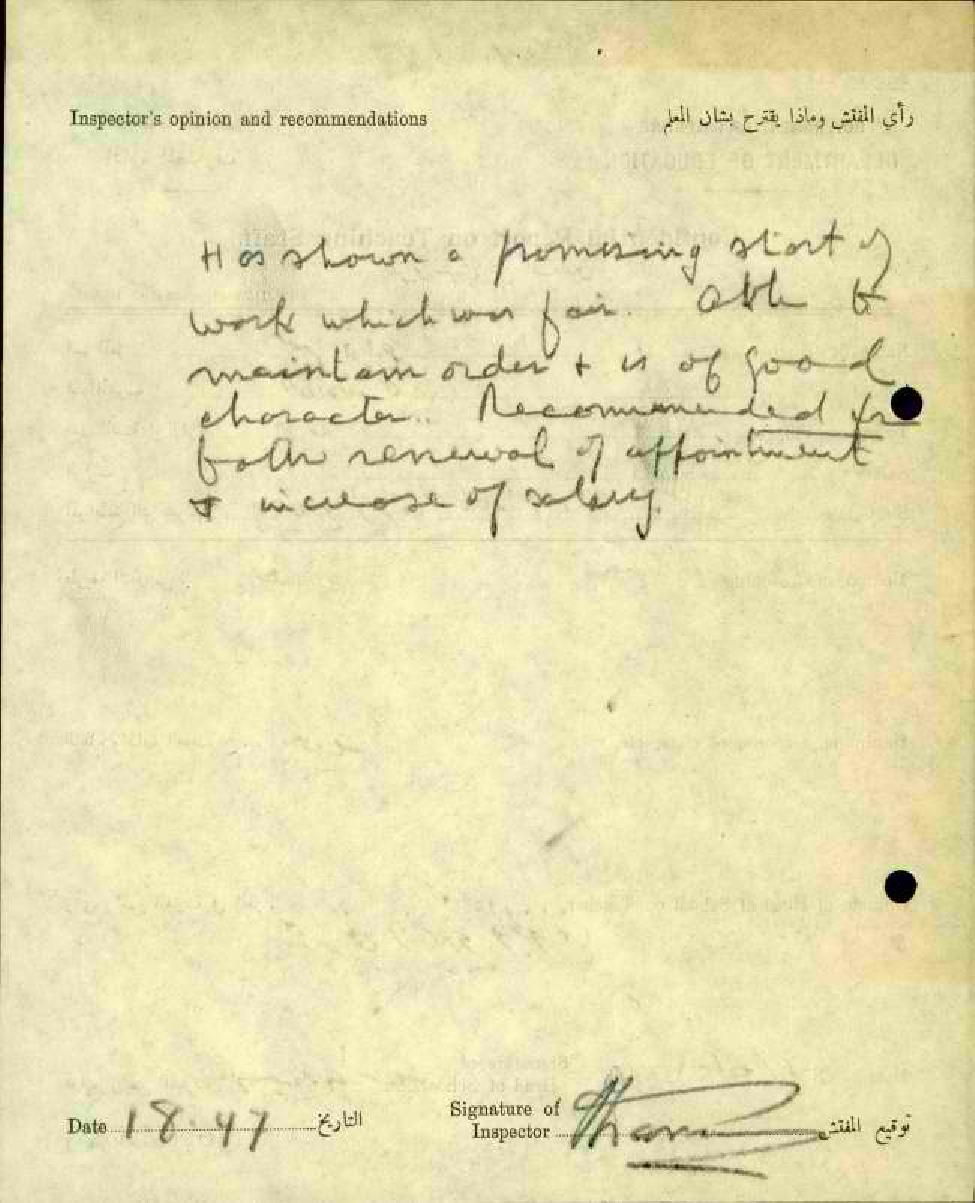 Inspector's opinion and recommendations رأي المفتش وماذا يقترح بشان المعلم
Has shown a promising start of
work which was fair. Able to
maintain order + is of good
character.. Recommended for
both renewal of appointment
+ increase of salary.
Date 1 8. 47 التاريخ
Signature of
Inspector توقيع المفتش